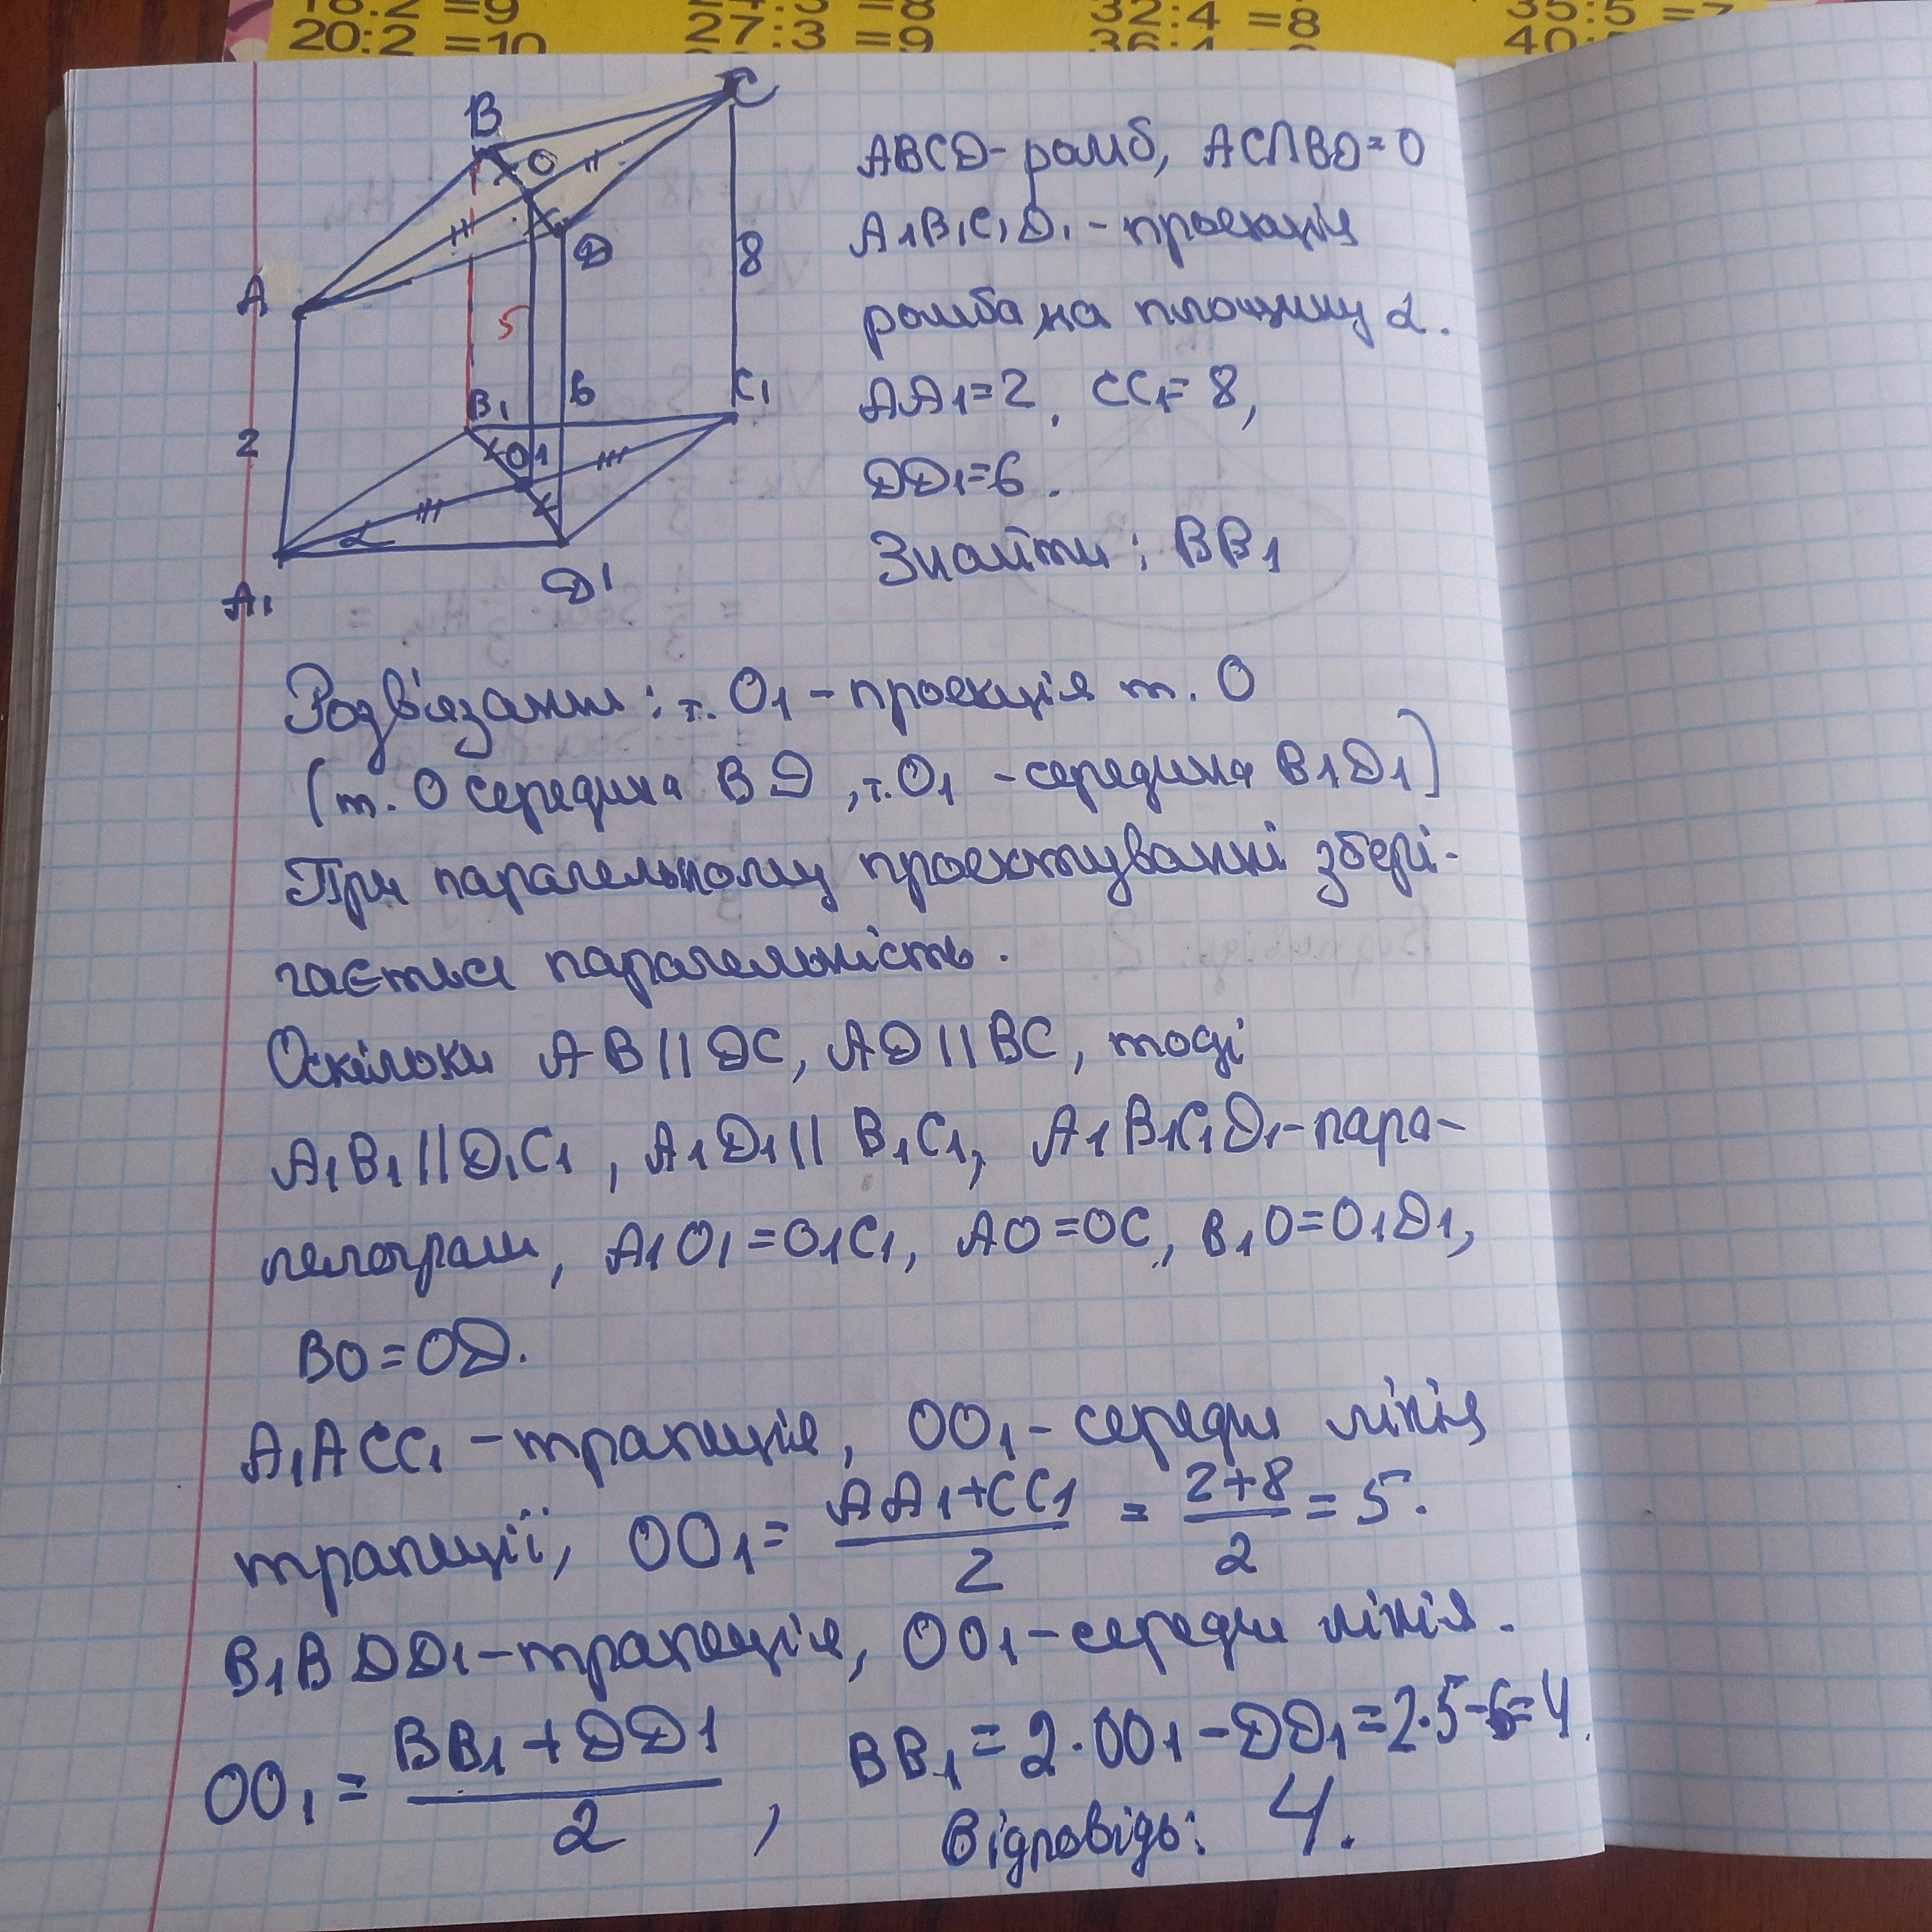 20:2 =10
27:3 =9
32:4 =8
35:5 =7
B
C
O
A
D
8
5
6
2
B1
C1
O1
α
A1
D1
ABCD-ромб, AC∩BD=O
A1B1C1D1 - проекція
ромба на площину α.
AA1=2, CC1=8,
DD1=6.
Знайти: BB1
Розв'язання: т. O1 - проекція т. O
(т. O середина BD, т. O1 - середина B1D1)
При паралельному проектуванні збері-
гається паралельність.
Оскільки AB||DC, AD||BC, тоді
A1B1||D1C1, A1D1||B1C1, A1B1C1D1-пара-
лелограм, A1O1=O1C1, AO=OC, B1O=O1D1,
BO=OD.
A1ACC1 - трапеція, OO1 - середня лінія
трапеції, OO1= AA1+CC1/2 = 2+8/2 = 5.
B1BDD1 - трапеція, OO1 - середня лінія.
OO1 = BB1+DD1/2, BB1=2·OO1-DD1=2·5-6=4.
Відповідь: 4.